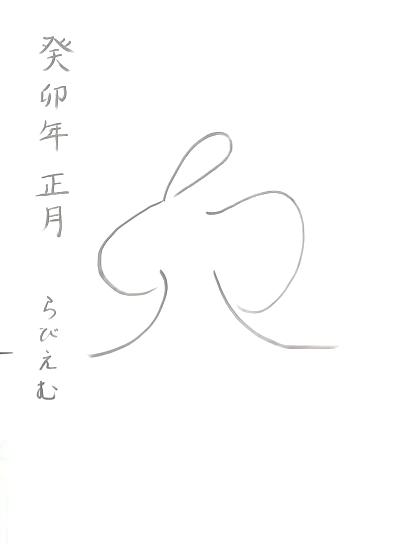 癸卯年 正月
らびえむ